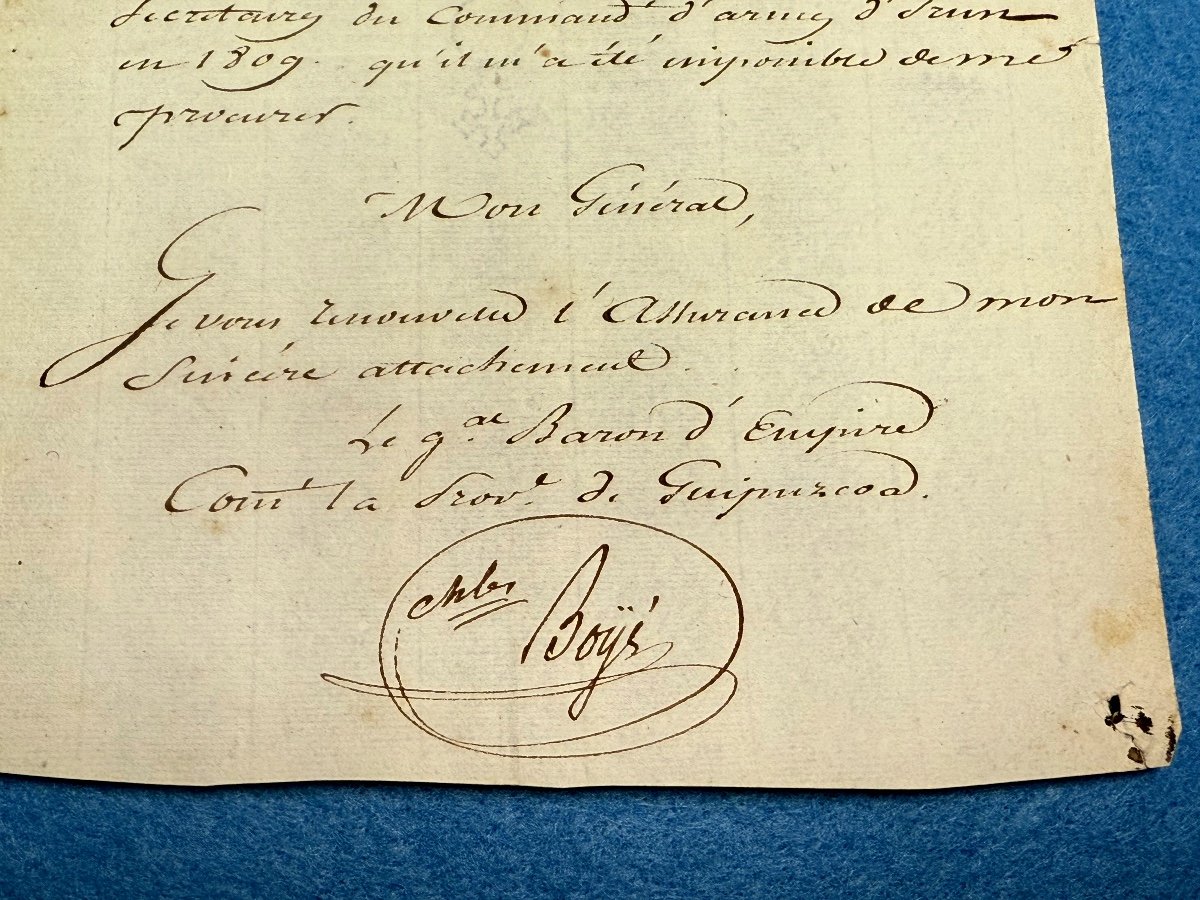 Secretaires du Command.t d'armes d'Irun
en 1809. qu'il m'a été impossible de me
procurer.
Mon Général,
Je vous renouvelle l'Assurance de mon
sincére attachement.
Le g.al Baron d'Empire
Com.t la Prov.e de Guipuzcoa.
Ch.les Boÿé